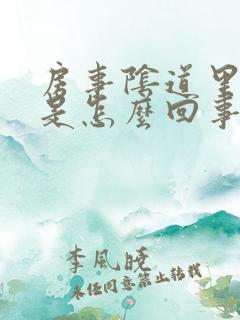 房事陰道里
是怎麼回事
李風曉
未经同意禁止转载